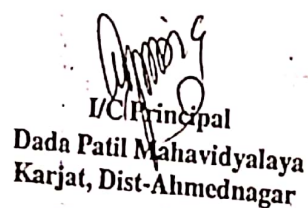 I/C Principal
Dada Patil Mahavidyalaya
Karjat, Dist-Ahmednagar